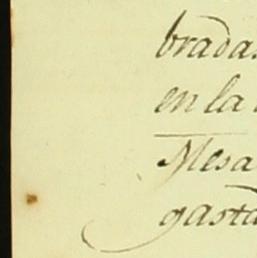 bradas
en la
Mesa
gasta